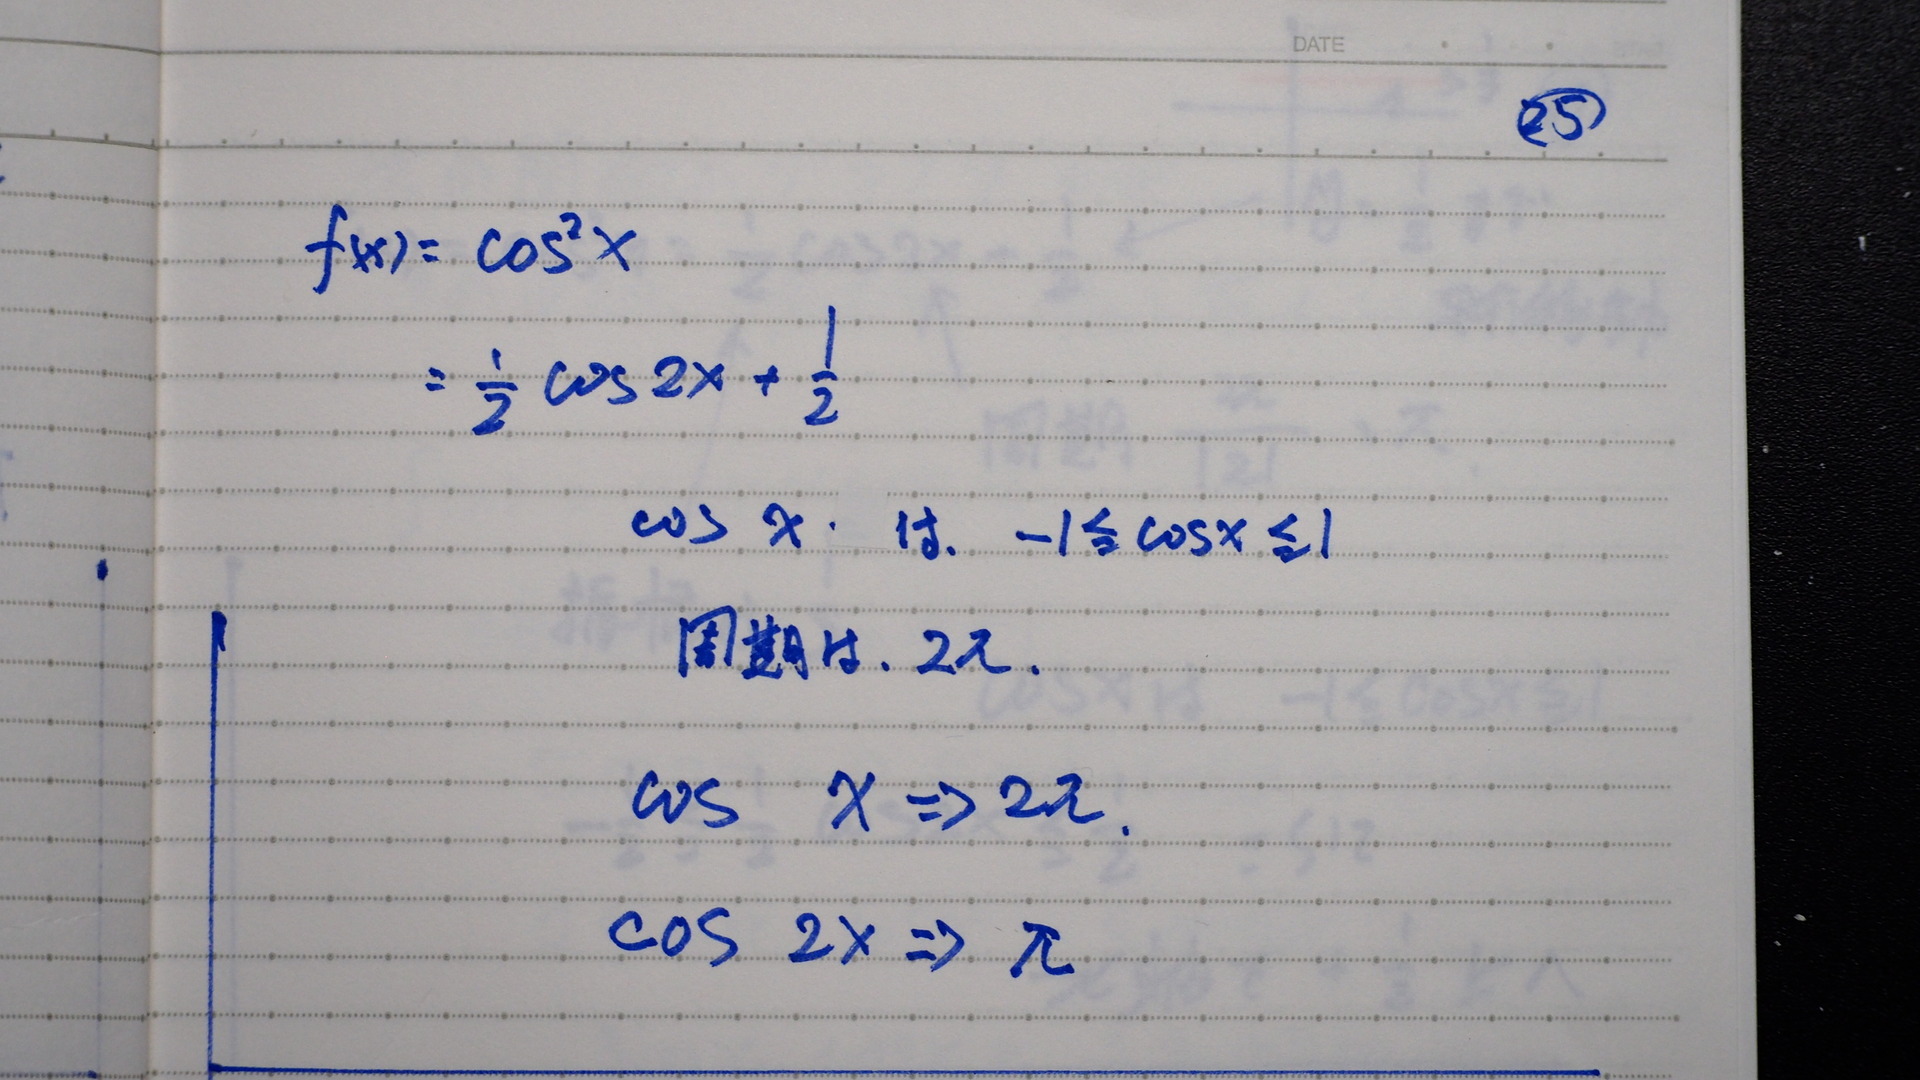 DATE
㉕
f(x) = cos²x
= 1/2 cos 2x + 1/2
cos x. は. -1 ≦ cosx ≦ 1
周期は. 2π.
cos x => 2π.
cos 2x => π